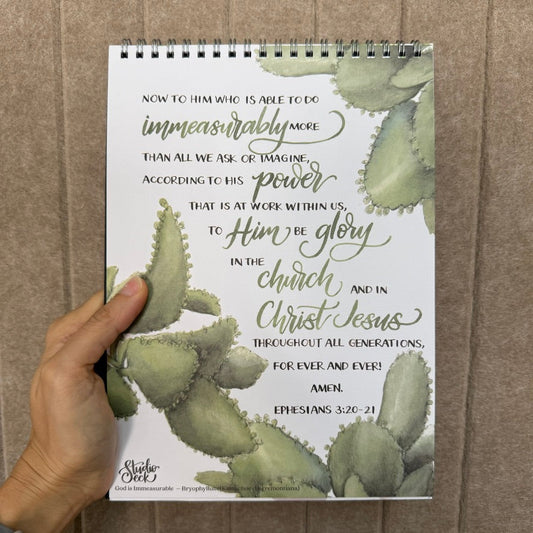 NOW TO HIM WHO IS ABLE TO DO
immeasurably MORE
THAN ALL WE ASK OR IMAGINE,
ACCORDING TO HIS power
THAT IS AT WORK WITHIN US,
TO Him BE glory
IN THE
church AND IN
Christ Jesus
THROUGHOUT ALL GENERATIONS,
FOR EVER AND EVER!
AMEN.
EPHESIANS 3:20-21
Studio
eek
God is Immeasurable